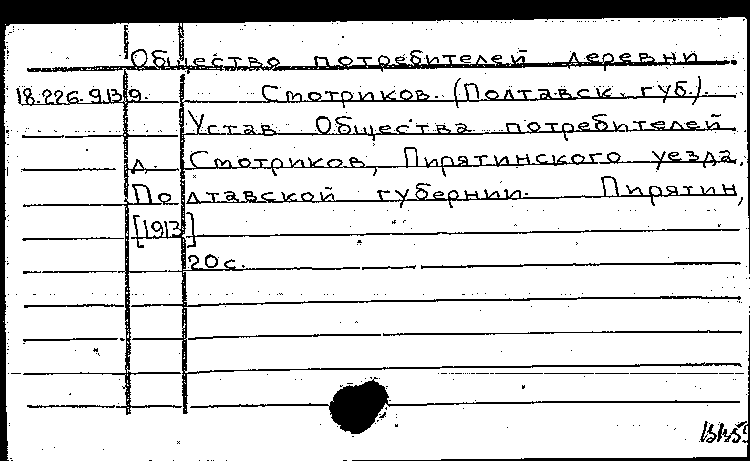 Общество потребителей деревни
18.226.9.139. Смотриков. (Полтавск. губ.).
Устав Общества потребителей
д. Смотриков, Пирятинского уезда,
Полтавской губернии. Пирятин,
[1913]
20 с.